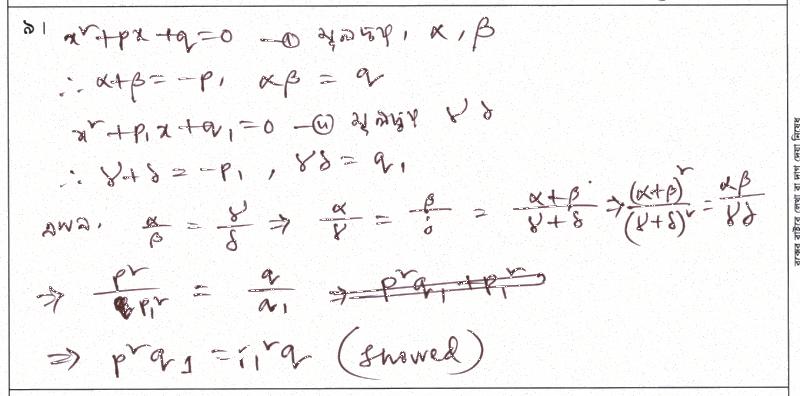 ৯। x²+px+q=0 —① মূলদ্বয়, α, β
∴ α+β = -p, αβ = q
x²+p₁x+q₁=0 —② মূলদ্বয় γ δ
∴ γ+δ = -p₁, γδ = q₁
এখন, α/β = γ/δ ⇒ α/γ = β/δ = α+β/γ+δ ⇒ (α+β)²/(γ+δ)² = αβ/γδ
⇒ p²/p₁² = q/q₁ ⇒ p²q₁ + p₁²
⇒ p²q₁ = p₁²q (Showed)
বক্সের বাইরে লেখা বা দাগ দেয়া নিষেধ